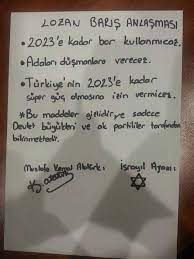 LOZAN BARIŞ ANLAŞMASI
• 2023'e kadar bor kullanmıcaz.
• Adaları düşmanlara verecez.
• Türkiye'nin 2023'e kadar
süper güç olmasına izin vermicez.
* Bu maddeler gizlidir ve sadece
Devlet büyükleri ve ak partililer tarafından
bilinmektedir.
Mustafa Kemal Atatürk: İsrayil Ajanı: